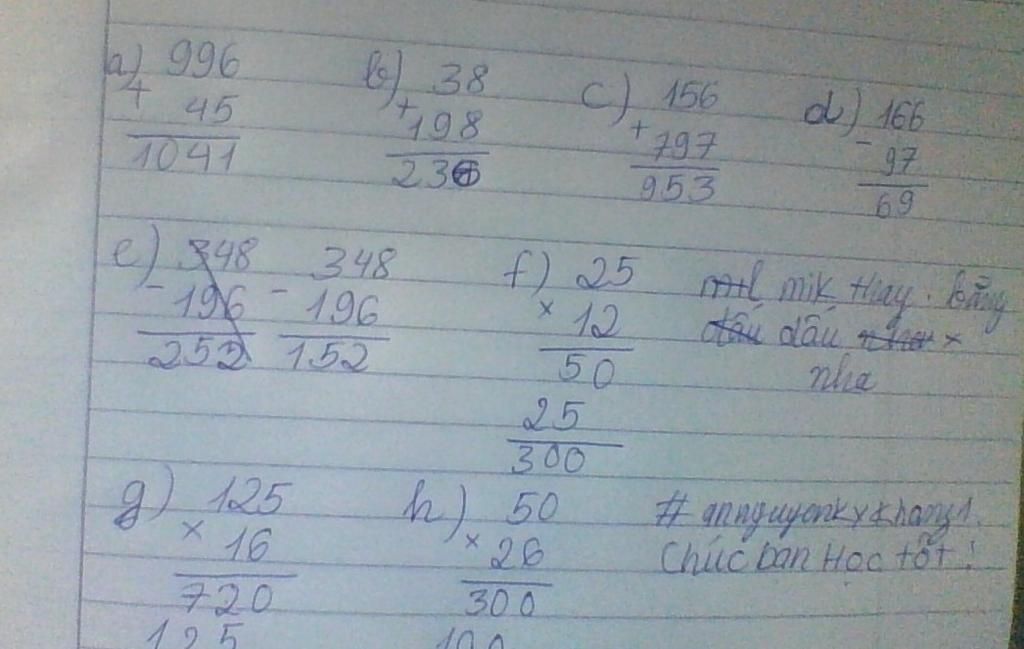 a) 996 b) 38 c) 156 d) 166
+ 45 + 198 + 797 - 97
1041 236 953 69
e) 348 348 f) 25 mik thay bằng
- 196 - 196 × 12 dấu ×
252 152 50 nha
25
300
g) 125 h) 50 #
× 16 × 26 Chúc bạn Học tốt!
720 300
125 100